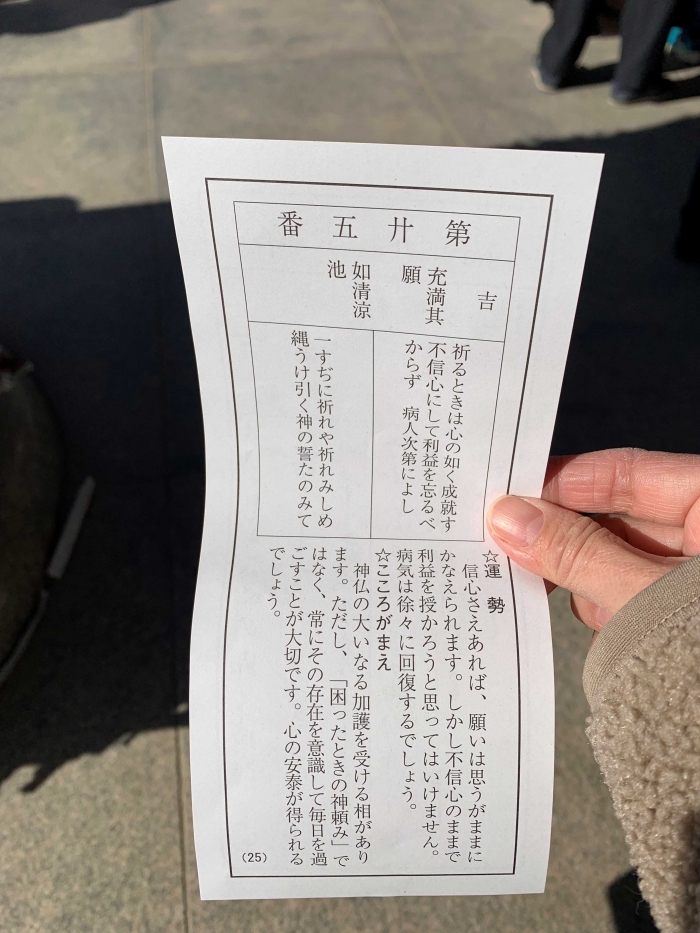 第廿五番
吉
充満其
願
如清涼
池
祈るときは心の如く成就す
不信心にして利益を忘るべ
からず　病人次第によし
一すぢに祈れや祈れみしめ
縄うけ引く神の誓たのみて
☆運　勢
信心さえあれば、願いは思うがままに
かなえられます。しかし不信心のままで
利益を授かろうと思ってはいけません。
病気は徐々に回復するでしょう。
☆こころがまえ
神仏の大いなる加護を受ける相があり
ます。ただし、「困ったときの神頼み」で
はなく、常にその存在を意識して毎日を過
ごすことが大切です。心の安泰が得られる
でしょう。
(25)